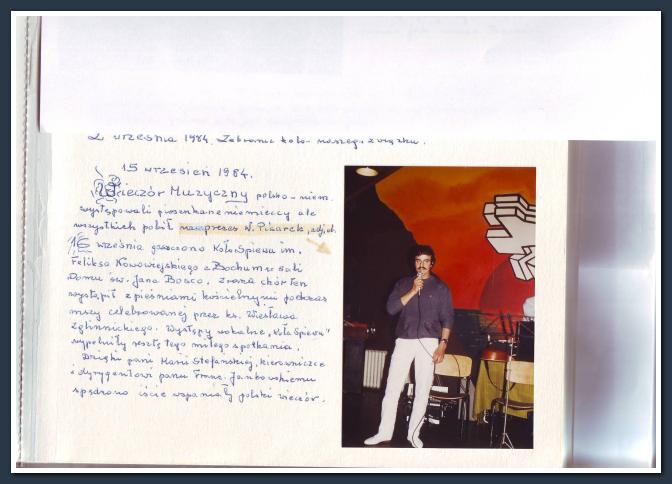 2 września 1984. Zebranie koło naszego związku.
15 wrzesień 1984.
Wieczór Muzyczny polsko-niem.
występowali piosenkarze niemieccy ale
wszystkich pobił nasz prezes W. Pisarek, zdj. ob.
16 września goszczono Koło Śpiewu im.
Feliksa Nowowiejskiego z Bochum w sali
Domu św. Jana Bosco. Z rana chór ten
wystąpił z pieśniami kościelnymi podczas
mszy celebrowanej przez ks. Wiesława
Występy wokalne „Koła Śpiewu”
wypełniły resztę tego miłego spotkania.
Dzięki pani Marii Stefańskiej, kierowniczce
i dyrygentowi panu Franc. Jankowskiemu
spędzono iście wspaniały polski wieczór.